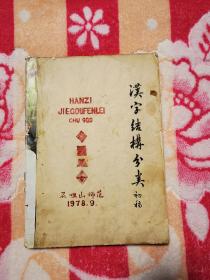 HANZI
JIEGOUFENLEI
CHU GGO
漢字结構分类 初稿
石咀山师范
1978.9.